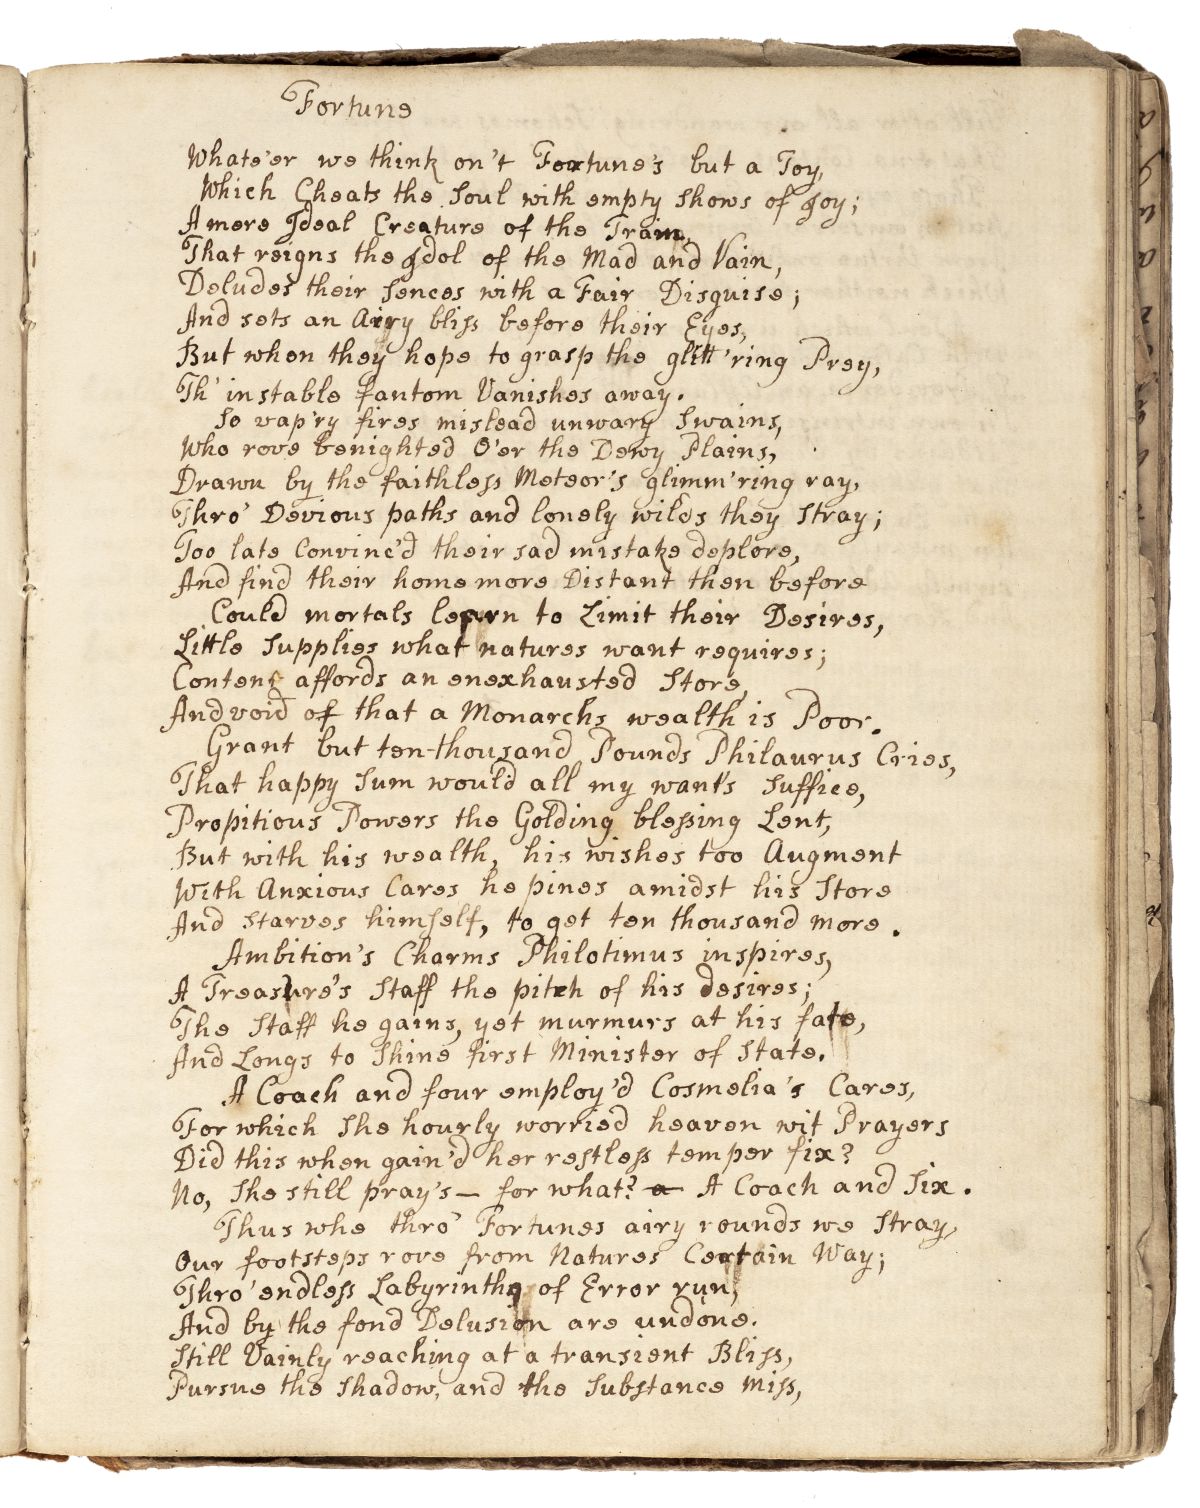 Fortune
Whate'er we think on't Fortune's but a Toy,
Which Cheats the Soul with empty Shows of Joy;
A mere Ideal Creature of the Train,
That reigns the Idol of the Mad and Vain,
Deludes their Sences with a Fair Disguise;
And sets an Airy bliss before their Eyes,
But when they hope to grasp the glitt'ring Prey,
Th' instable fantom Vanishes away.
So vap'ry fires mislead unwary Swains,
Who rove benighted O'er the Dewy Plains,
Drawn by the faithless Meteor's glimm'ring ray,
Thro' Devious paths and lonely wilds they Stray;
Too late Convinc'd their sad mistake deplore,
And find their home more Distant then before
Could mortals learn to Limit their Desires,
Little Supplies what natures want requires;
Content affords an enexhausted Store,
And void of that a Monarchs wealth is Poor.
Grant but ten-thousand Pounds Philaurus Cries,
That happy Sum would all my want's Suffice,
Propitious Powers the Golding blessing Lent,
But with his wealth, his wishes too Augment
With Anxious Cares he pines amidst his Store
And Starves himself, to get ten thousand more.
Ambition's Charms Philotimus inspires,
A Treasure's Staff the pitch of his desires;
The Staff he gains, yet murmurs at his fate,
And Longs to Shine first Minister of State.
A Coach and four employ'd Cosmelia's Cares,
For which She hourly worried heaven wit Prayers
Did this when gain'd her restless temper fix?
No, She still pray's — for what? a A Coach and Six.
Thus whe thro' Fortunes airy rounds we Stray,
Our footsteps rove from Natures Certain Way;
Thro' endless Labyrinths of Error run,
And by the fond Delusion are undone.
Still Vainly reaching at a transient Bliss,
Pursue the Shadow, and the Substance Miss,